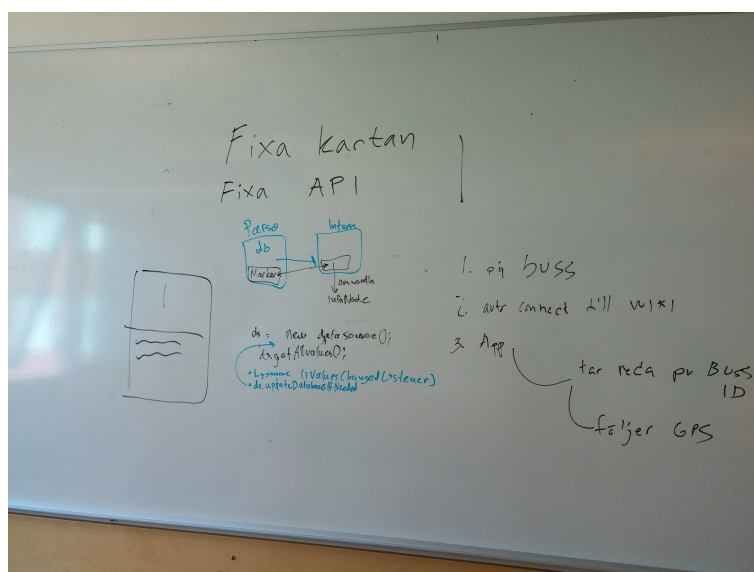 Fixa kartan
Fixa API
Parse
Intern
db
Marker
omvandla
InfoNode
ds = New dataSource();
ds.getAllValues();
Lyssnare (iValuesChangedListener)
ds.updateDatabaseIfNeeded
1. på buss
2. auto connect till WIFI
3. App
tar reda på BUSS
ID
följer GPS